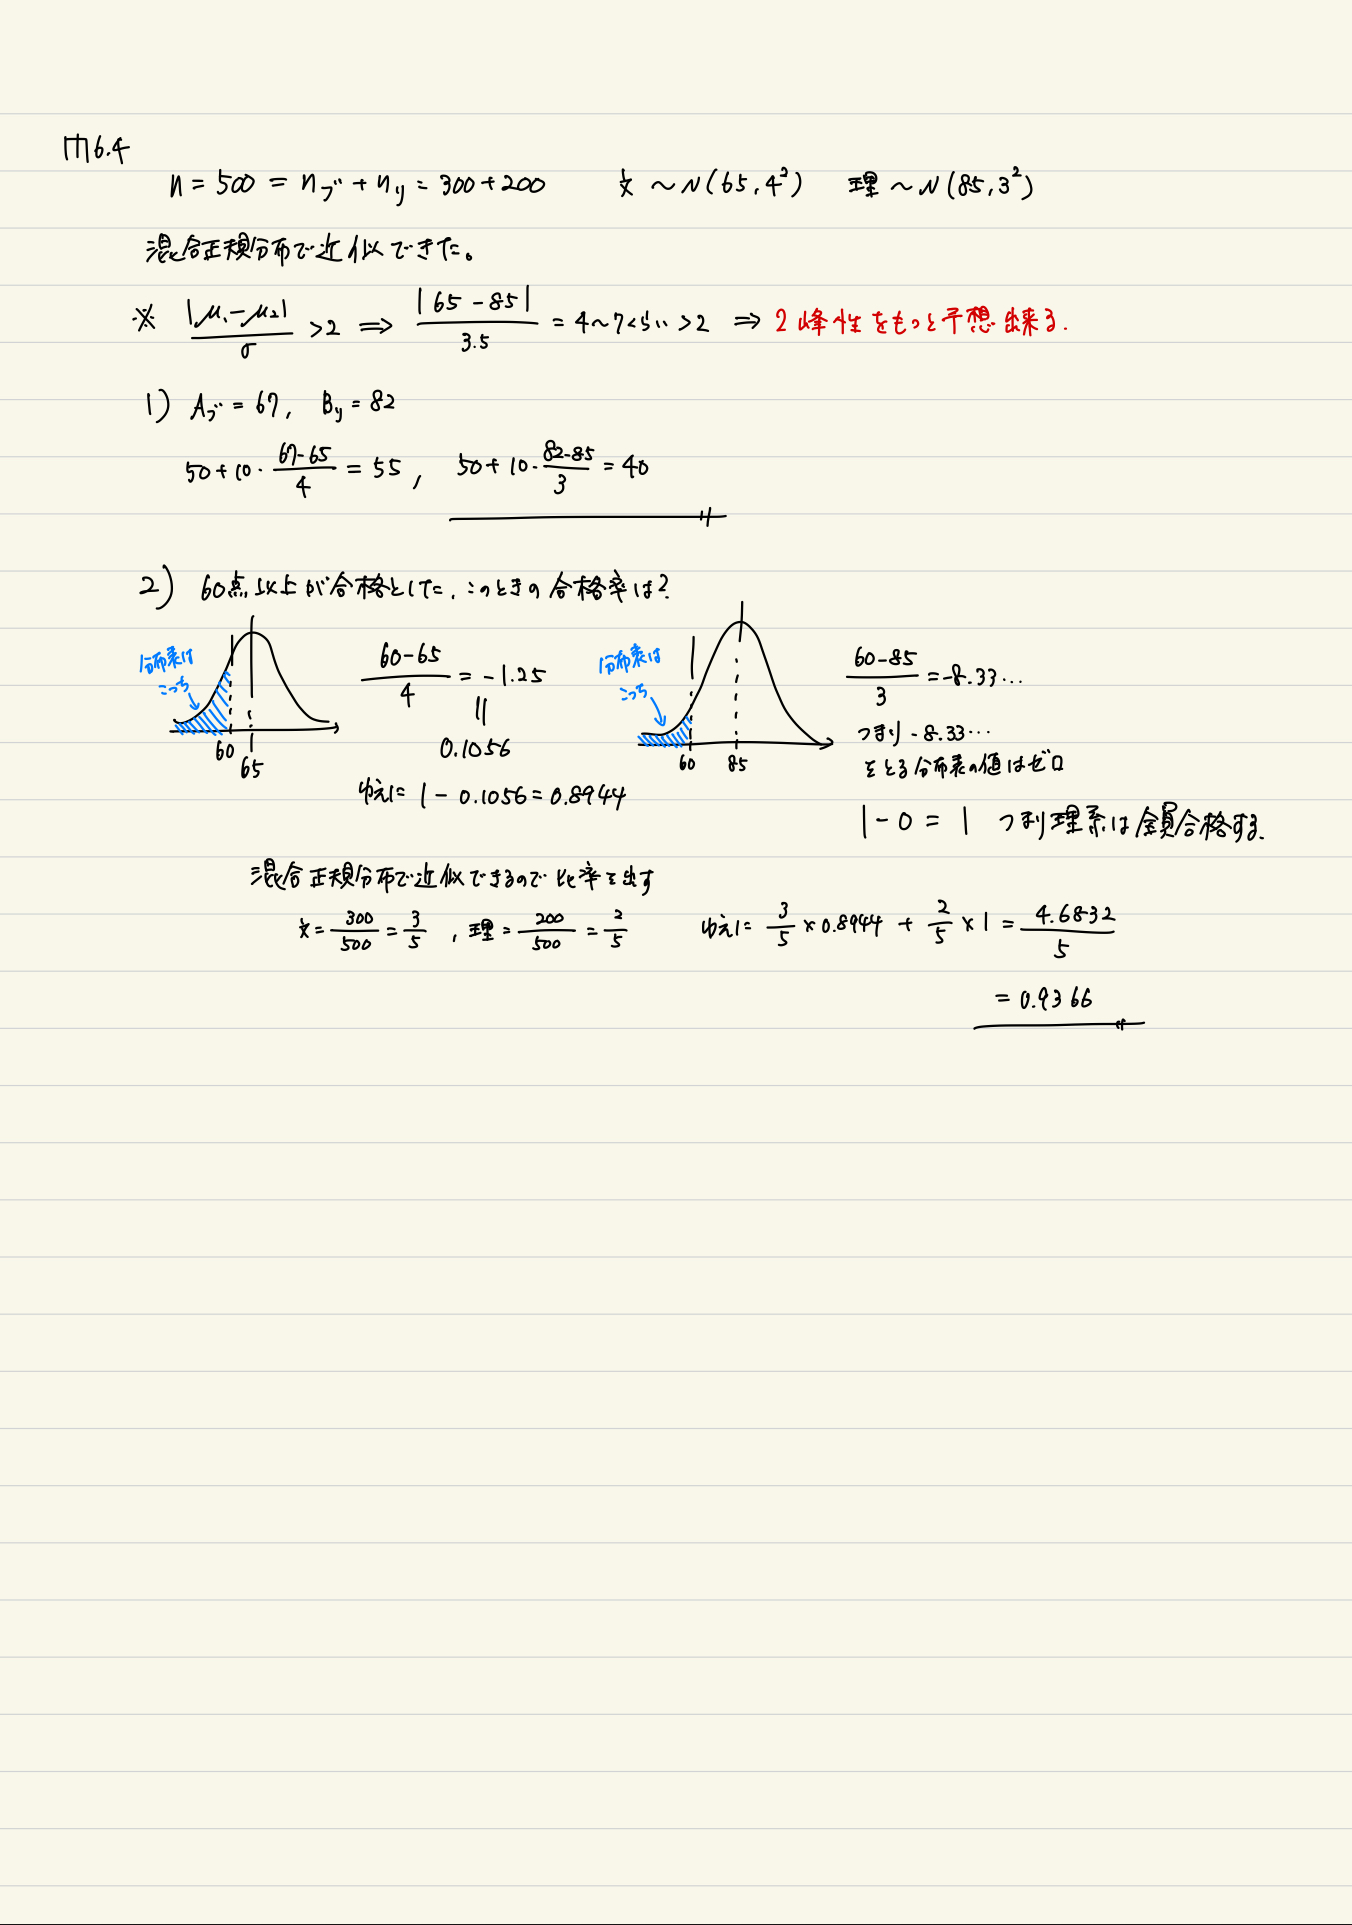 問6.4
n = 500 = nブ + ny = 300 + 200 文 ~ N(65, 4²) 理 ~ N(85, 3²)
混合正規分布で近似できた。
※ |μ₁-μ₂|/σ > 2 ⇒ |65-85|/3.5 = 4~7くらい > 2 ⇒ 2峰性をもつと予想出来る.
1) Aブ = 67, By = 82
50+10・(67-65)/4 = 55, 50+10・(82-85)/3 = 40
2) 60点以上が合格とした. このときの合格率は?
分布表は
こっち
60
65
(60-65)/4 = -1.25
||
0.1056
ゆえに 1 - 0.1056 = 0.8944
分布表は
こっち
60 85
(60-85)/3 = -8.33…
つまり -8.33…
をとる分布表の値はゼロ
1 - 0 = 1 つまり理系は全員合格する.
混合正規分布で近似できるので比率を出す
文 = 300/500 = 3/5 , 理 = 200/500 = 2/5 ゆえに 3/5 × 0.8944 + 2/5 × 1 = 4.6832/5
= 0.9366